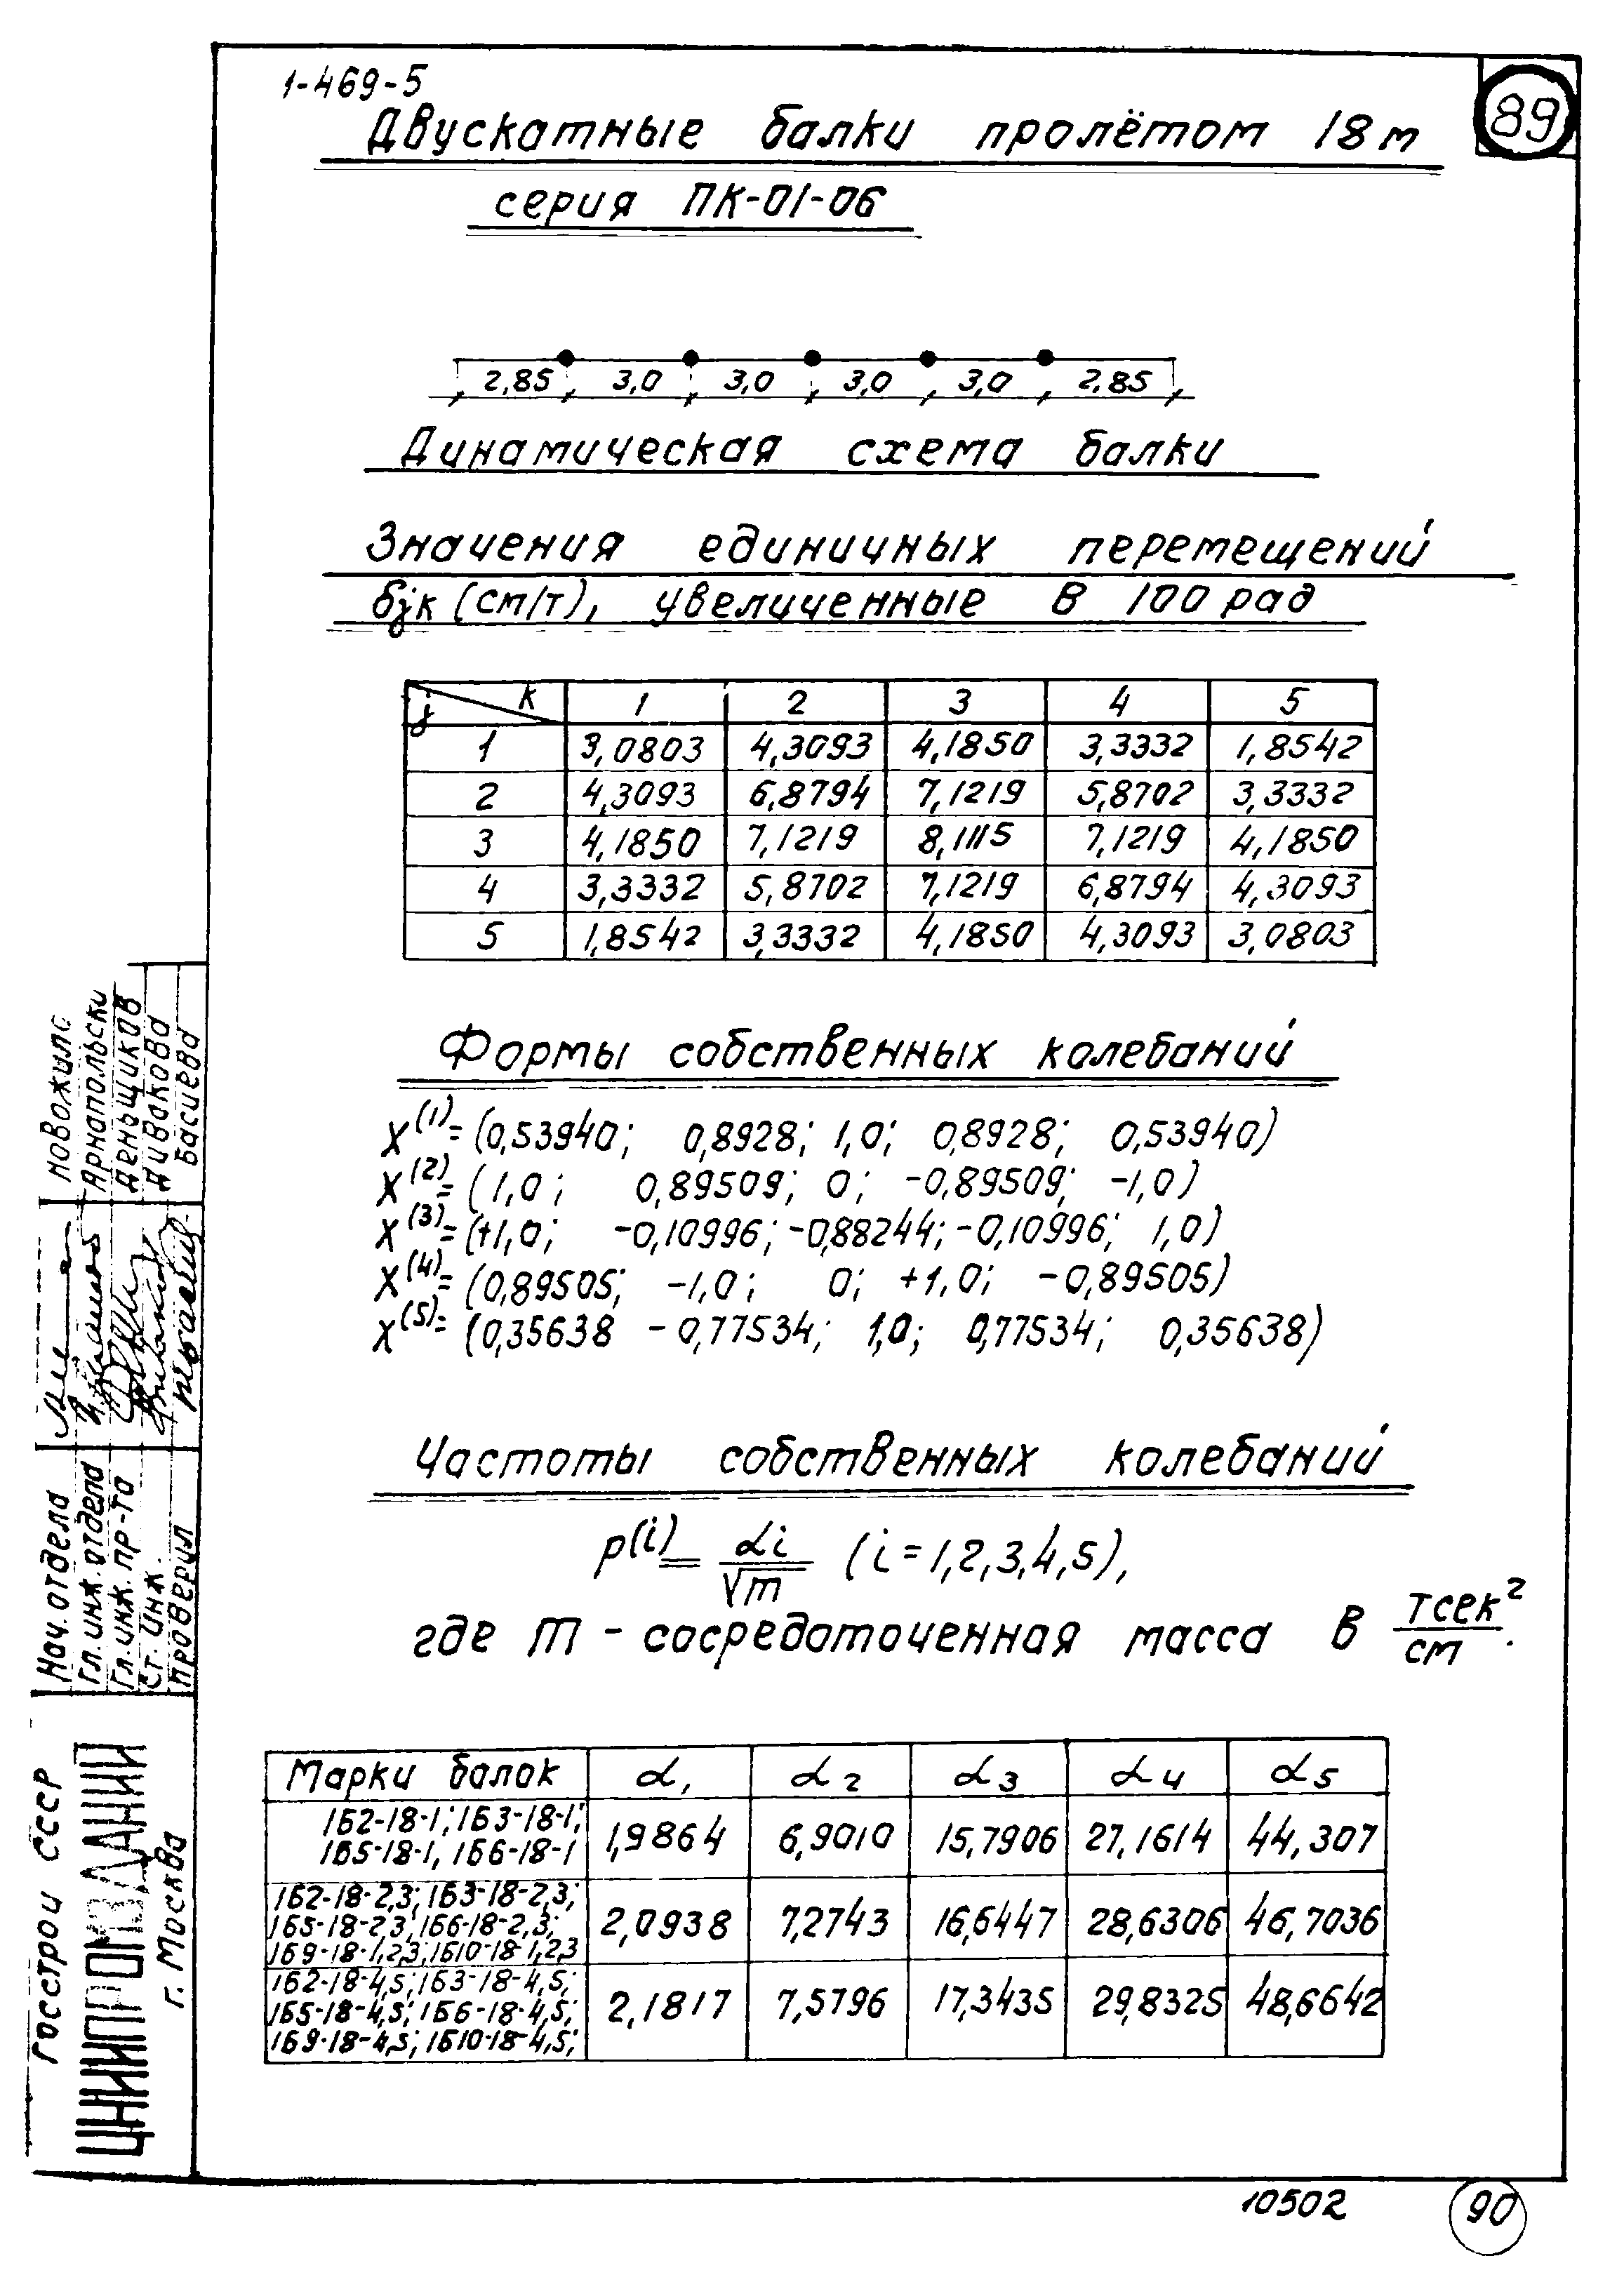 1-469-5
89
Двускатные балки пролётом 18 м
серия ПК-01-06
2,85 3,0 3,0 3,0 3,0 2,85
Динамическая схема балки
Значения единичных перемещений
бjк (см/т), увеличенные в 100 рад
j k 1 2 3 4 5
1 3,0803 4,3093 4,1850 3,3332 1,8542
2 4,3093 6,8794 7,1219 5,8702 3,3332
3 4,1850 7,1219 8,1115 7,1219 4,1850
4 3,3332 5,8702 7,1219 6,8794 4,3093
5 1,8542 3,3332 4,1850 4,3093 3,0803
Формы собственных колебаний
X(1)= (0,53940; 0,8928; 1,0; 0,8928; 0,53940)
X(2)= (1,0; 0,89509; 0; -0,89509; -1,0)
X(3)= (+1,0; -0,10996; -0,88244; -0,10996; 1,0)
X(4)= (0,89505; -1,0; 0; +1,0; -0,89505)
X(5)= (0,35638 -0,77534; 1,0; 0,77534; 0,35638)
Частоты собственных колебаний
p(i) = αi/√m (i = 1,2,3,4,5),
где m - сосредоточенная масса в тсек²/см.
Марки балок α1 α2 α3 α4 α5
1Б2-18-1; 1Б3-18-1;
1Б5-18-1, 1Б6-18-1 1,9864 6,9010 15,7906 27,1614 44,307
1Б2-18-2,3; 1Б3-18-2,3;
1Б5-18-2,3; 1Б6-18-2,3; 2,0938 7,2743 16,6447 28,6306 46,7036
1Б9-18-1,2,3; 1Б10-18-1,2,3
1Б2-18-4,5; 1Б3-18-4,5;
1Б5-18-4,5; 1Б6-18-4,5; 2,1817 7,5796 17,3435 29,8325 48,6642
1Б9-18-4,5; 1Б10-18-4,5;
Госстрой СССР
ЦНИИПРОМЗДАНИЙ
г. Москва
Нач. отдела Новожило
Гл. инж. отдела Арнапольски
Гл. инж. пр-та Деньщиков
Ст. инж. Дивакова
Проверил Басиева
10502
90